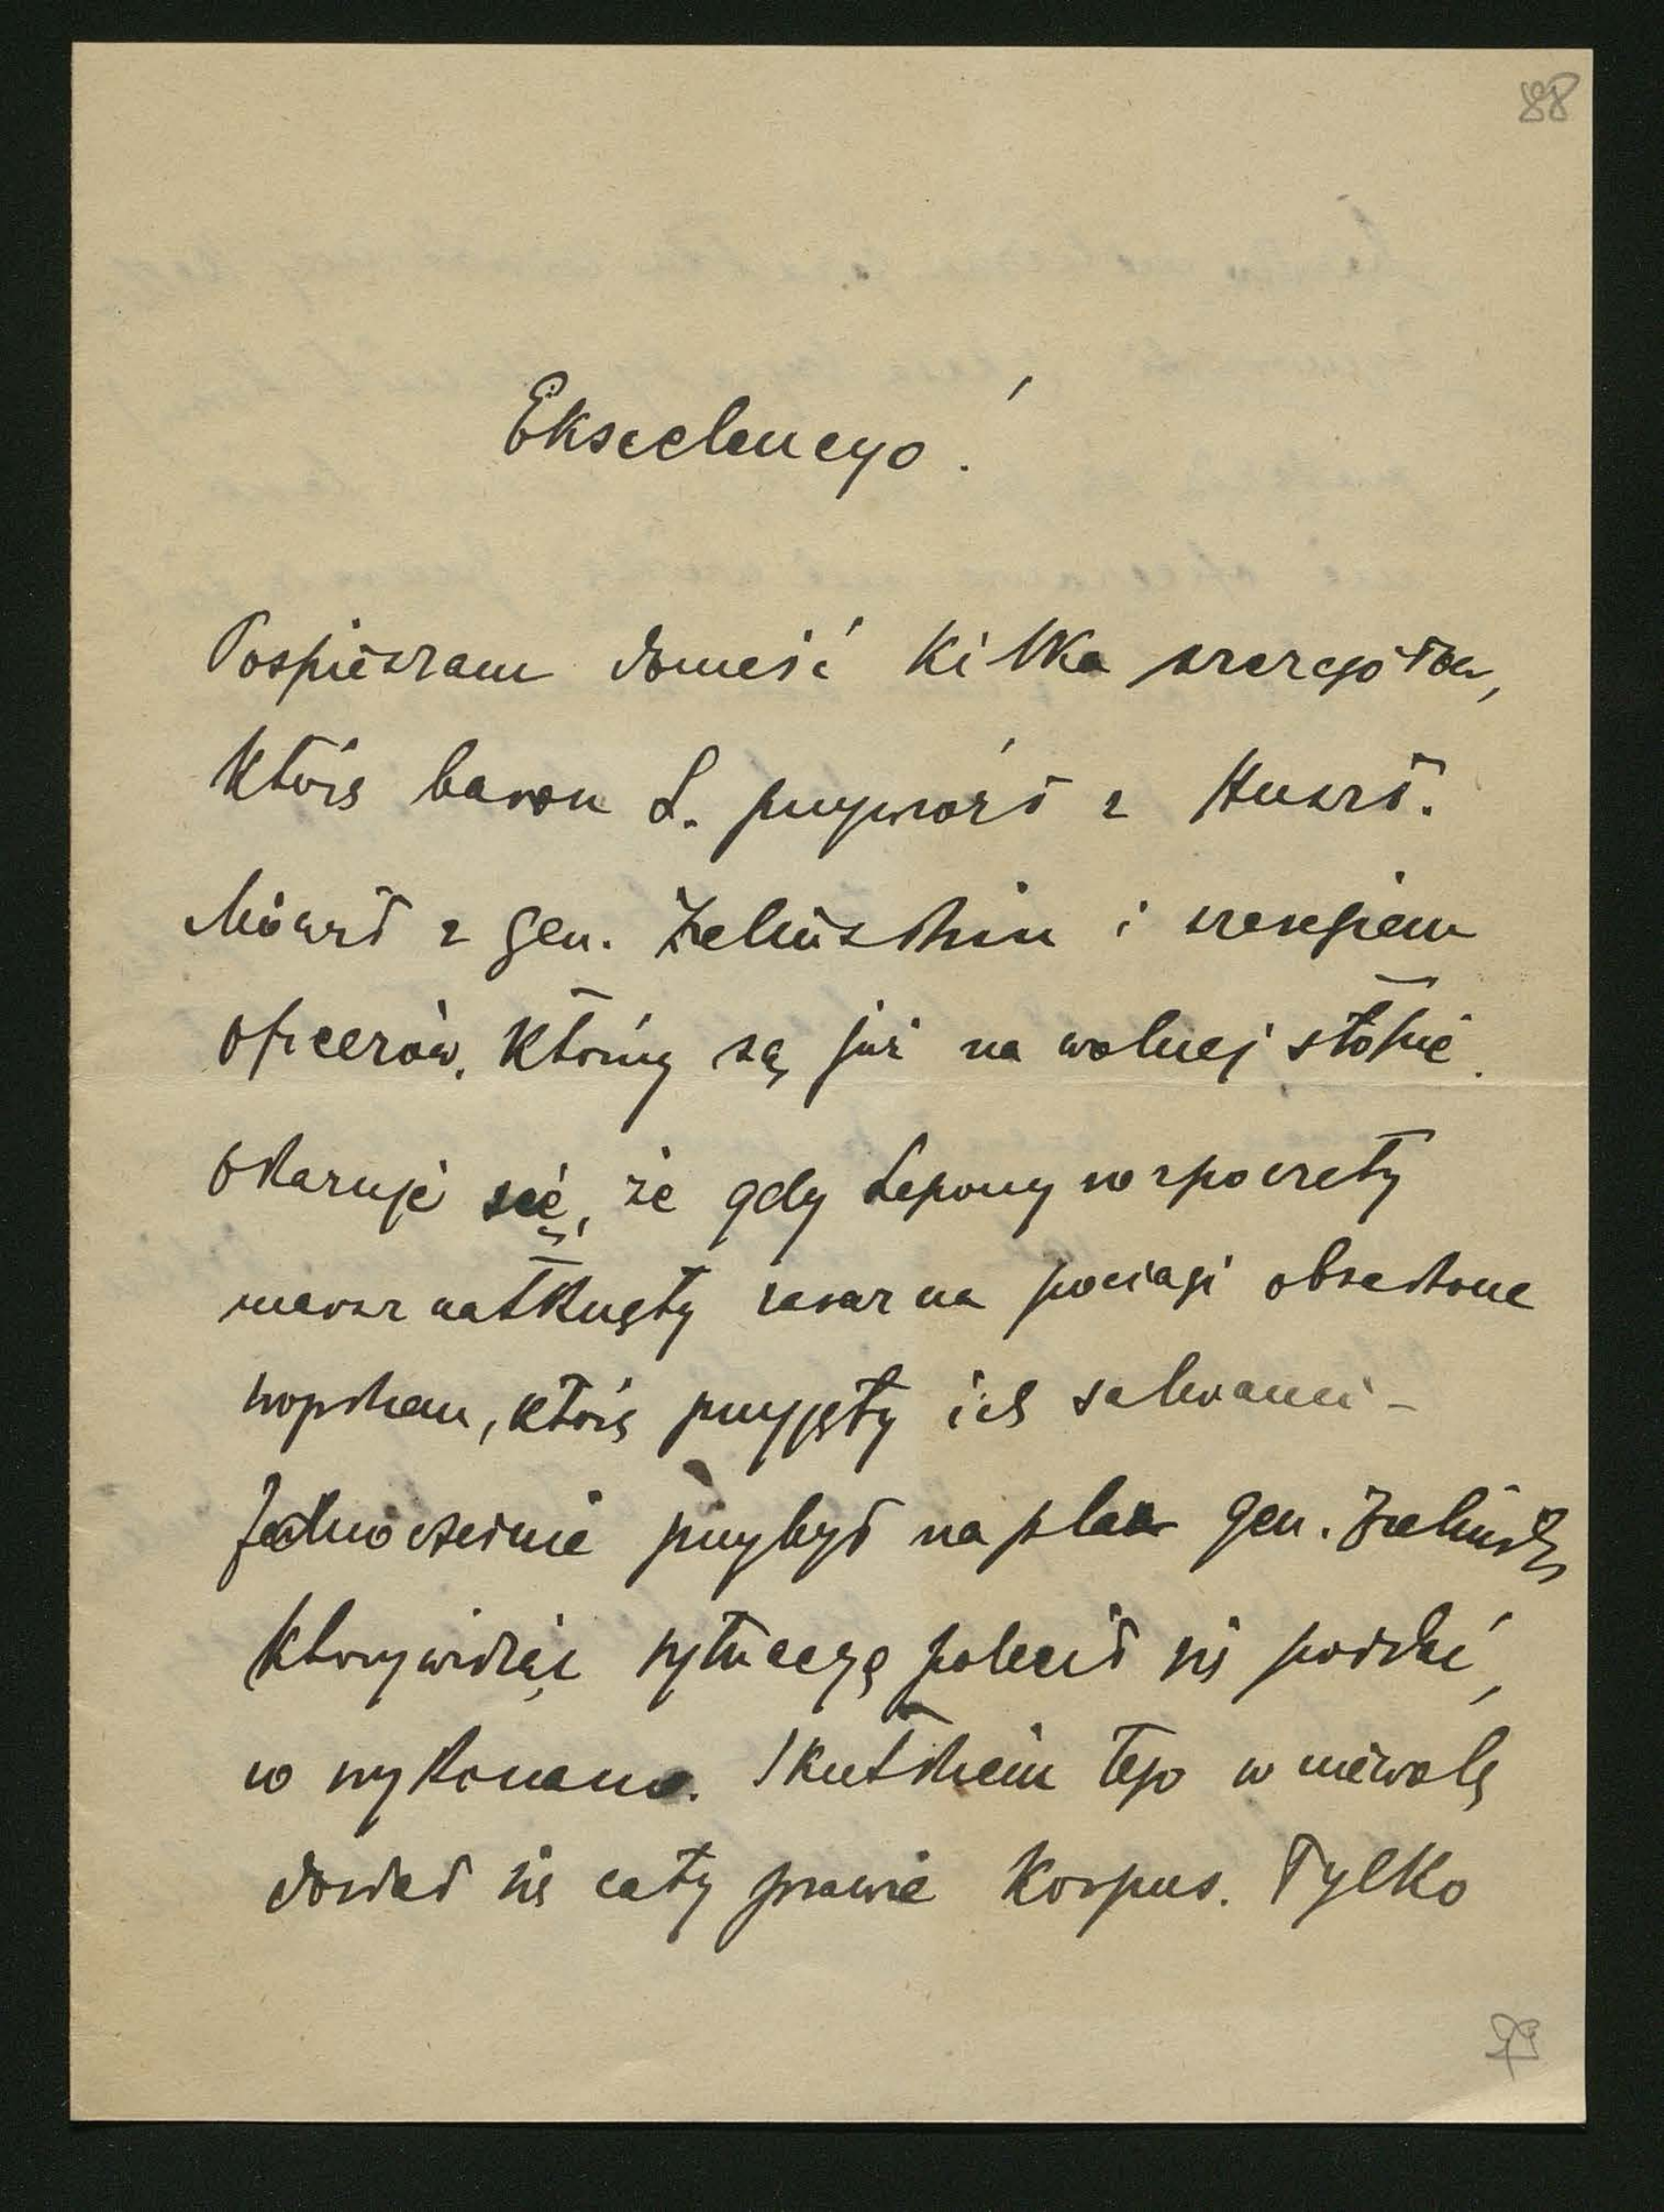 88
Ekscelencyo!
Pospieszam donieść kilka szczegółów,
które baron L. przywiózł z Huszt.
Mówił z gen. Zielińskim i szeregiem
oficerów, którzy są już na wolnej stopie.
Okazuje się, że gdy Legiony rozpoczęły
marsz natknęły zaraz na pociągi obsadzone
wojskiem, które przyjęły ich salwami -
Jednocześnie przybył na plac gen. Zieliński
który widząc sytuacyę polecił się poddać,
co wykonano. Skutkiem tego w niewolę
dostał się cały prawie korpus. Tylko
79